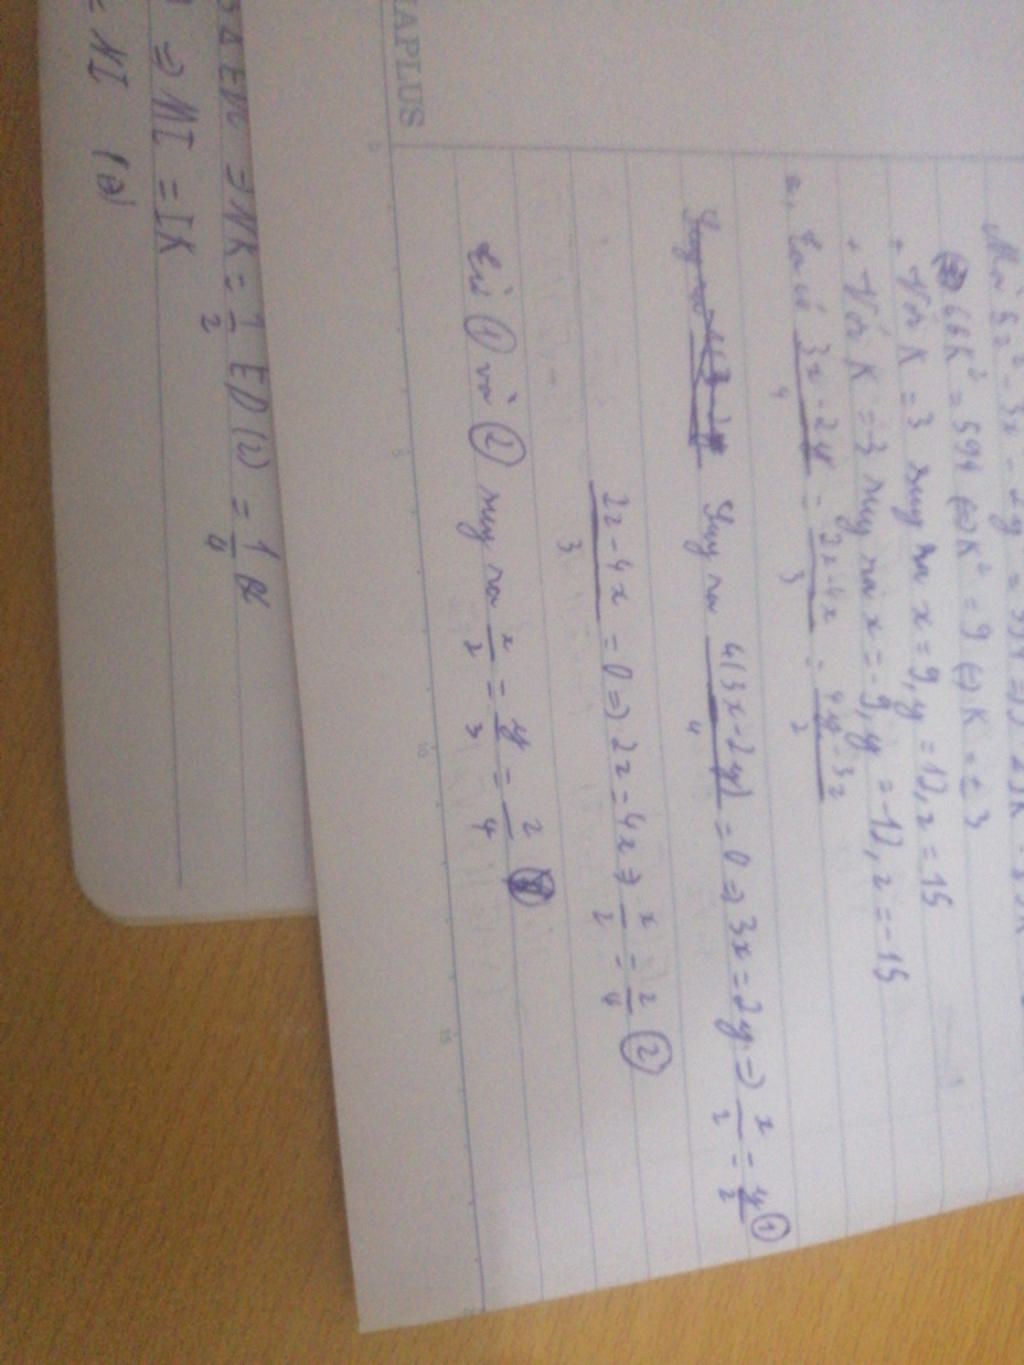 = 594
66k² = 594 ⇔ k² = 9 ⇔ k = ± 3
+ Với k = 3 suy ra x = 9, y = 12, z = 15
+ Với k = -3 suy ra x = -9, y = -12, z = -15
a, Ta có (3x - 2y)/4 = (2z - 4x)/3 = (4y - 3z)/2
Suy ra 4(3x - 2y)/4 = 0 => 3x = 2y => x/2 = y/2 ①
(2z - 4x)/3 = 0 => 2z = 4x => x/2 = z/4 ②
Từ ① và ② suy ra x/2 = y/3 = z/4
NAPLUS
EK => NK = 1/2 ED (2) = 1/4
=> MI = IK
= NI